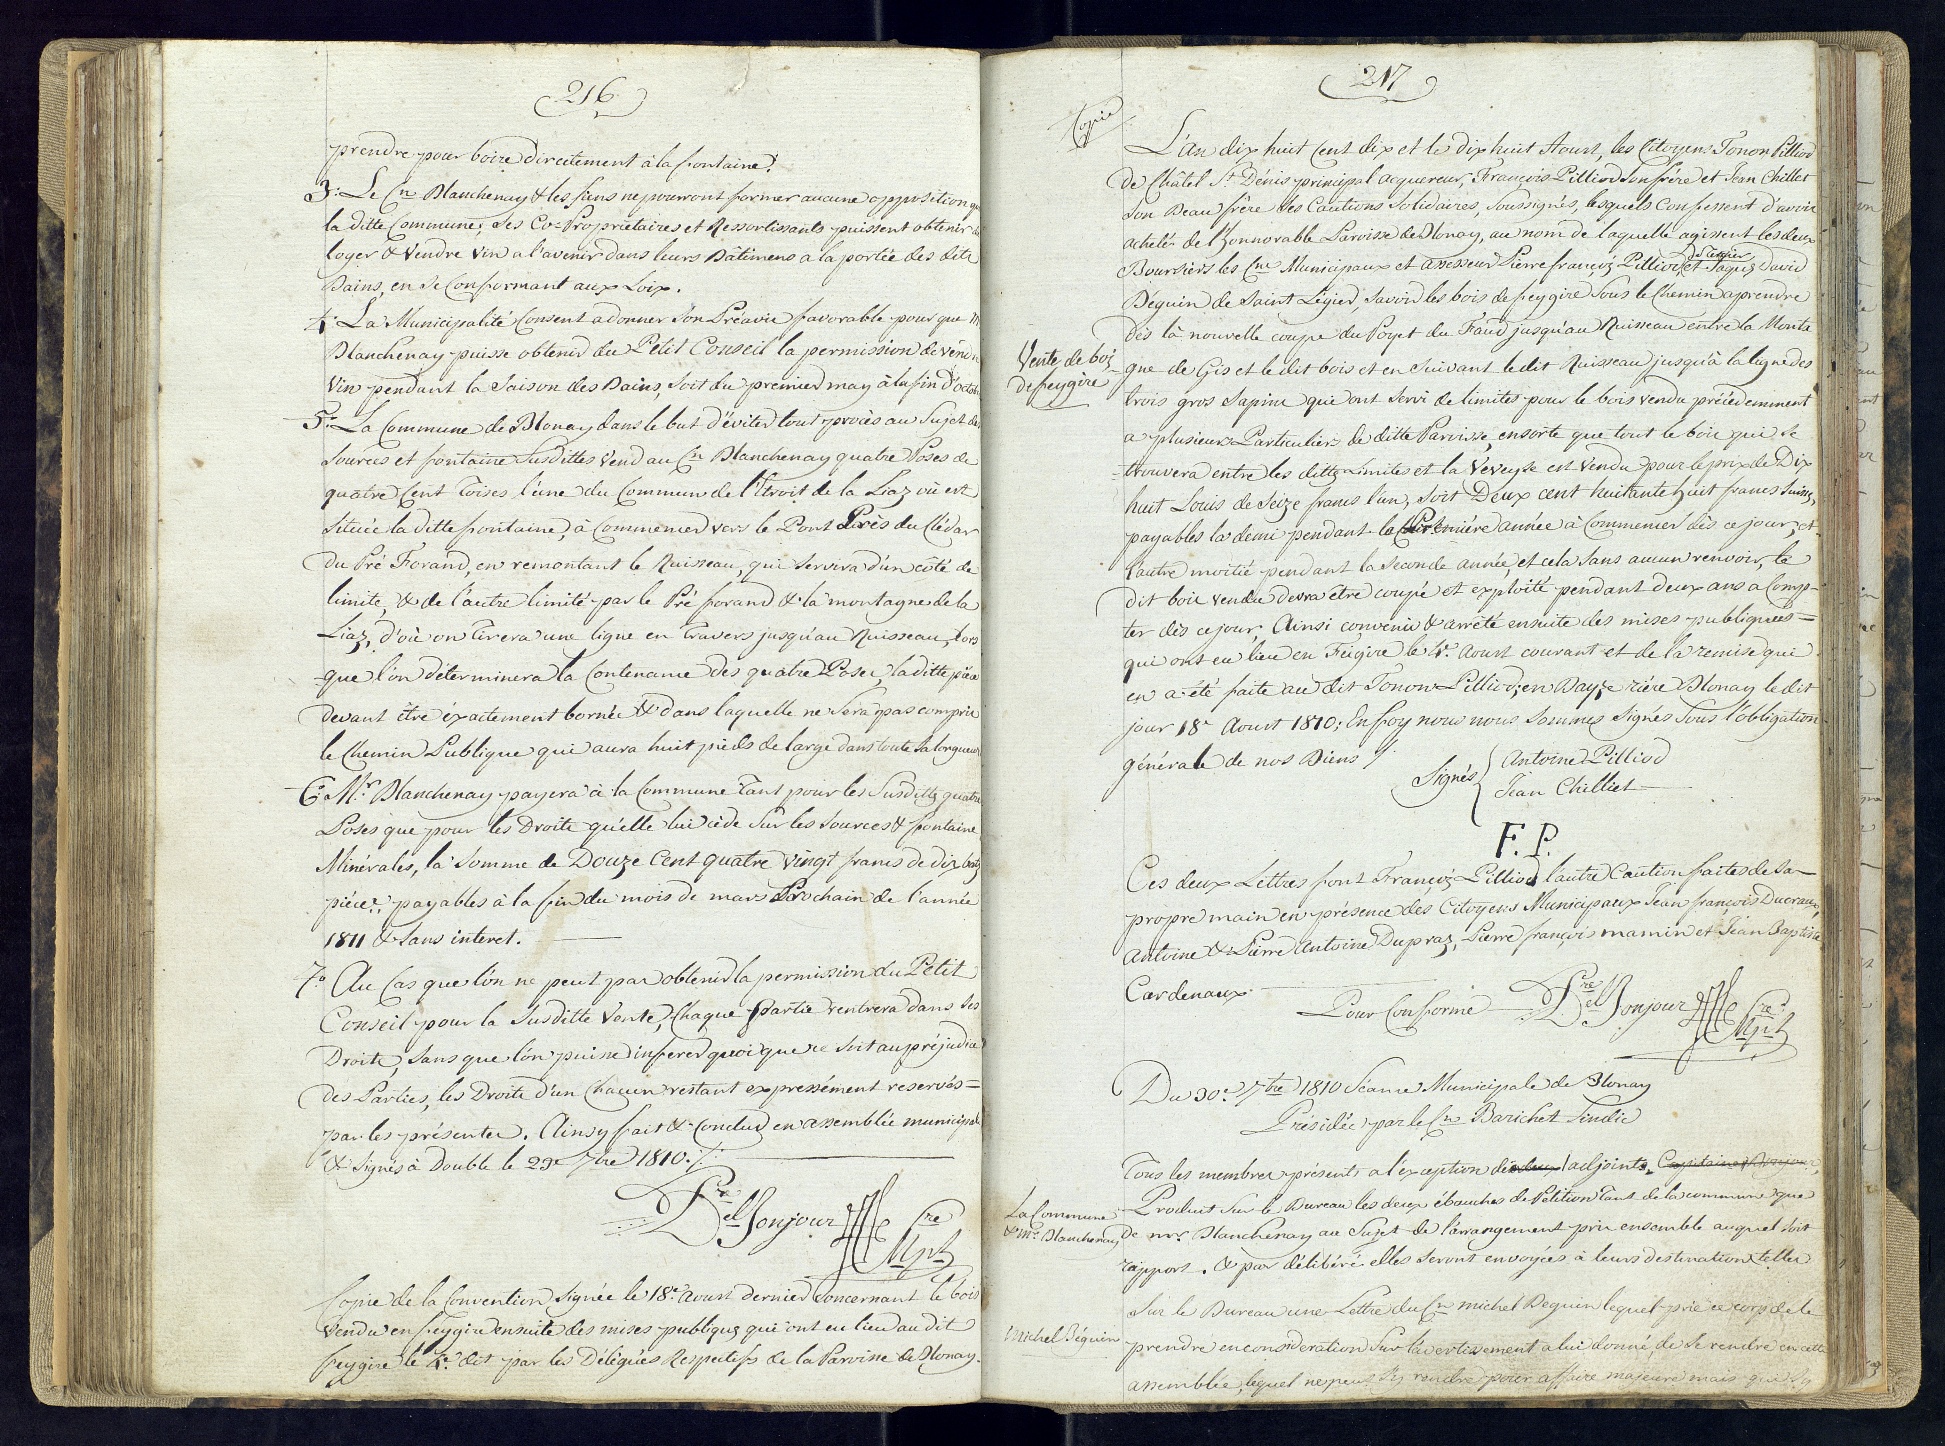 216
prendre pour boire directement à la fontaine.
3.° Le Cn Blanchenay & les siens ne pourront former aucune opposition que
la ditte Commune, Ses Co-Propriétaires et Ressortissants puissent obtenir de
loger & Vendre Vin a l'avenir dans leurs Bâtimens a la portée des dits
Bains, en se Conformant aux Loix.
4.° La Municipalité Consent a donner Son Préavis favorable pour que Mr
Blanchenay puisse obtenir du Petit Conseil la permission de vendre
Vin pendant la Saison des Bains, Soit du premier may à la fin d'octobre
5.° La Commune de Blonay dans le but d'éviter tout procès au Sujet des
Sources et fontaine Susdittes Vend au Cn Blanchenay quatre Poses de
quatre Cent Toises l'une du Commun de l'Etroit de la Liaz où est
Située la ditte fontaine, à Commencer vers le Pont Près du Clédar
du Pré Forand, en remontant le Ruisseau, qui Servira d'un côté de
limite, & de l'autre limité par le Pré forand & la montagne de la
Liaz, d'où on Tirera une ligne en Travers jusqu'au Ruisseau, lors
que l'on déterminera la Contenance des quatre Poses, la ditte pièce
devant être éxactement bornée & dans laquelle ne Sera pas compris
le Chemin Publique qui aura huit pieds de large dans toute sa longueur
6.° Mr Blanchenay payera à la Commune Tant pour les Susdittes quatre
Poses que pour les Droits qu'elle lui cède Sur les Sources & fontaine
Minérales, la Somme de Douze Cent quatre Vingt francs de dix batz
pièce, payables à la fin du mois de mars Prochain de l'année
1811 & Sans interet.
7.° Au Cas que l'on ne peut pas obtenir la permission du Petit
Conseil pour la Susditte Vente, Chaque Partie rentrera dans Ses
Droits, Sans que l'on puisse inferer quoi que ce Soit au préjudice
des Parties, les Droits d'un Chacun restant expressément reservés
par les présentes. Ainsy fait & Conclud en assemblée municipale
& Signés à Double le 29e 7bre 1810.
Del Bonjour Sre Mpl
Copie de la Convention Signée le 18e Aoust dernier Concernant le bois
Vendu en feygire ensuite des mises publiques qui ont eu lieu au dit
feygire le 4e dit par les Délégués Respectifs de la Paroisse de Blonay.
217
Copie
L'an dix huit Cent dix et le dix huit Aoust, les Citoyens Tonon Pilliod
de Châtel St Dénis principal acquereur, François Pilliod Son frére et Jean Chillet
Son Beau frère Ses Cautions Solidaires, Soussignés, lesquels Confessent d'avoir
acheté de l'honnorable Paroisse de Blonay, au nom de laquelle agissent les deux
Boursiers les Cns Municipaux et assesseur Pierre françois Pilliod et Jaques David
de St Legier
Béguin de Saint Légier, Savoir les bois de feygire Sous le Chemin a prendre
dès la nouvelle coupe du Poyet du Faud jusqu'au Ruisseau entre la Monta
Vente de bois
de feygire
gne de Gis et le dit bois et en Suivant le dit Ruisseau jusqu'à la ligne des
trois gros Sapins qui ont Servi de limites pour le bois vendu précédemment
a plusieurs Particuliers de ditte Paroisse, ensorte que tout le bois qui se
trouvera entre les dittes limites et la Veveyse est Vendu pour le prix de Dix
huit Louis de Seize francs l'un, Soit Deux cent huitante huit francs Suisses,
payables la demi pendant la Premiére année à Commencer dès ce jour, et
l'autre moitié pendant la Seconde année, et cela Sans aucun renvoir, le
dit bois vendu devra etre coupé et exploité pendant deux ans a Comp-
ter dès ce jour, Ainsi convenu & arrêté ensuite des mises publiques
qui ont eu lieu en Feigire le 4e Aoust courant et de la remise qui
en a été faite au dit Tonon Pilliod, en Bayse riére Blonay le dit
jour 18e Aoust 1810; En foy nous nous Sommes Signés Sous l'obligation
générale de nos Biens
Signés { Antoine Pilliod
Jean Chilliet
F. P.
Ces deux Lettres font François Pilliod l'autre Caution faites de Sa
propre main en présence des Citoyens Municipaux Jean françois Ducraux,
Antoine & Pierre Antoine Dupraz, Pierre françois mamin et Jean Baptiste
Cardenaux.
Pour Conforme Del Bonjour Sre Mpl
Du 30e 7bre 1810 Séance Municipale de Blonay
Présidée par le Cn Barichet Sindic
Tous les membres présents a l'éxception des deux adjoints, Capitaine Bonjour
La Commune
& Mr Blanchenay
Produit Sur le Bureau les deux ébauches de Petition Tant de la commune que
de Mr Blanchenay au Sujet de l'arrangement pris ensemble auquel soit
rapport. & par délibéré elles Seront envoyées à leurs destination telles
Michel Béguin
Sur le Bureau une Lettre du Cn michel Beguin lequel prie ce corps de le
prendre en considération Sur l'avertissement a lui donné, de Se rendre en cette
assemblée, lequel ne peut S'y rendre pour affaire majeure mais que